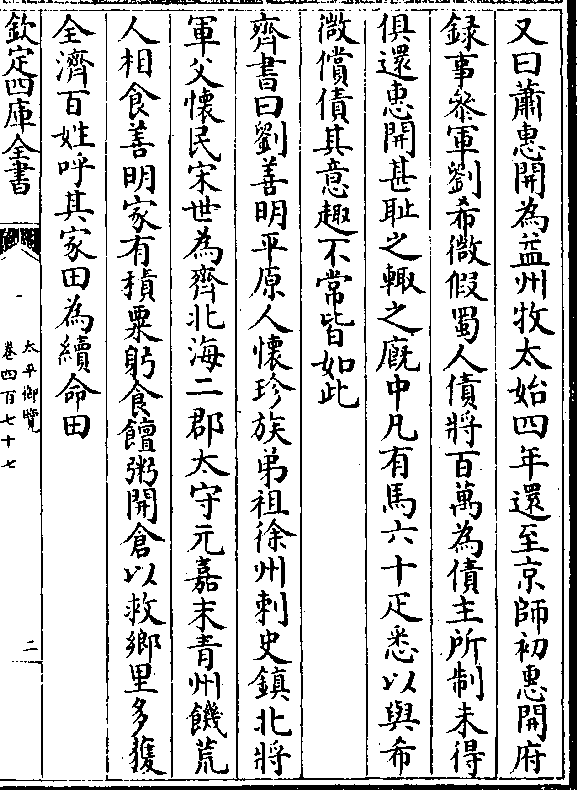 又曰蕭惠開為益州牧太始四年還至京師初惠開府
録事叅軍劉希微假蜀人債將百萬為債主所制未得
俱還惠開甚耻之輙之廐中凡有馬六十疋悉以與希
微償債其意趣不常皆如此
齊書曰劉善明平原人懷珍族弟祖徐州刺史鎮北將
軍父懷民宋世為齊北海二郡太守元嘉末青州饑荒
人相食善明家有積粟躬食饘粥開倉以救鄉里多獲
全濟百姓呼其家田為續命田
欽定四庫全書
太平御覽
卷四百七十七
二